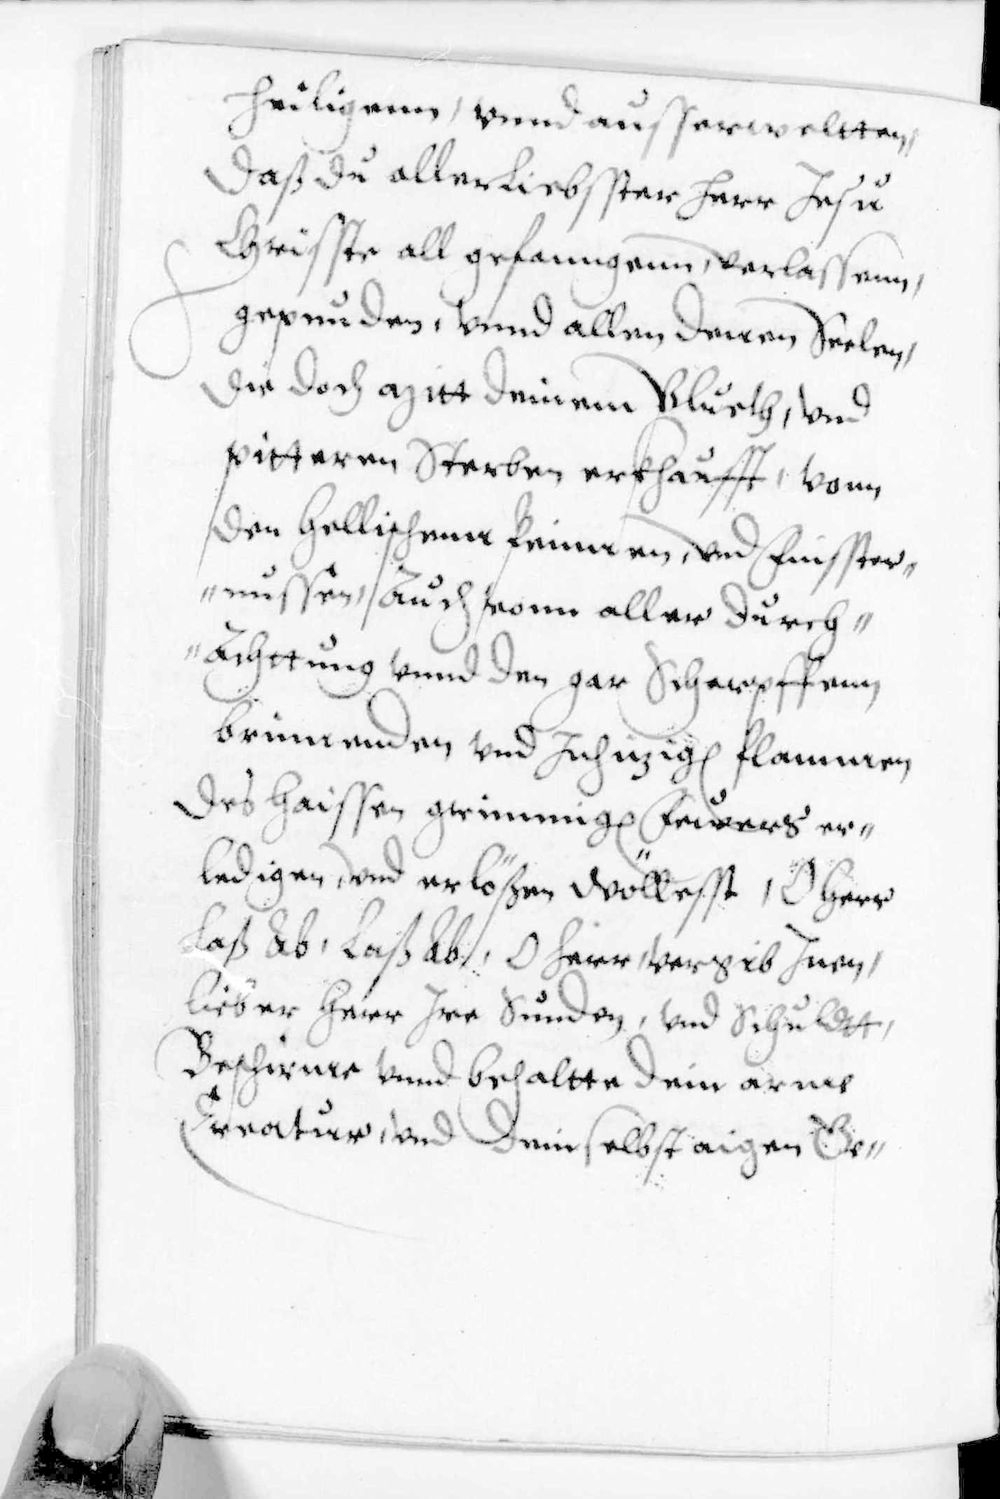 heiligenn, vnnd ausserweltten,
Daß du allerliebsster herr Jesu
Chrisste all gefanngenn, verlassenn,
gepunden, vnnd allen denen Seelen,
die doch mitt deinem Blueth, vnd
pitteren Sterben erkhaufft, vonn
den hellischenn peinnen, vnd Finsster„
„nussen, Auch vonn aller durch„
„Achttung vnnd den gar Scharpffenn
brinnenden vnd Inhizigen flammen
des haissen grimmigen Feuers er„
ledigen, vnd erlößen wöllesst, O herr
laß Ab, laß Ab, O herr, vergib Inen,
lieber herr Ire Sunden, vnd Schuldtt,
Beschirme vnnd behaltte dein arme
Creatur, vnd dein selbst aigen Ge„